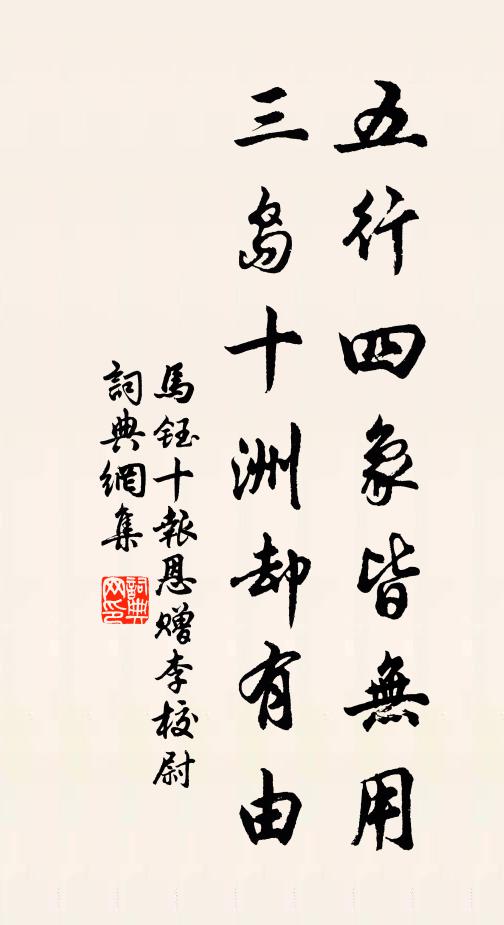 五行四象皆無用
三島十洲却有由
馬鈺十報恩贈李校尉
詞典網集
詞典網印